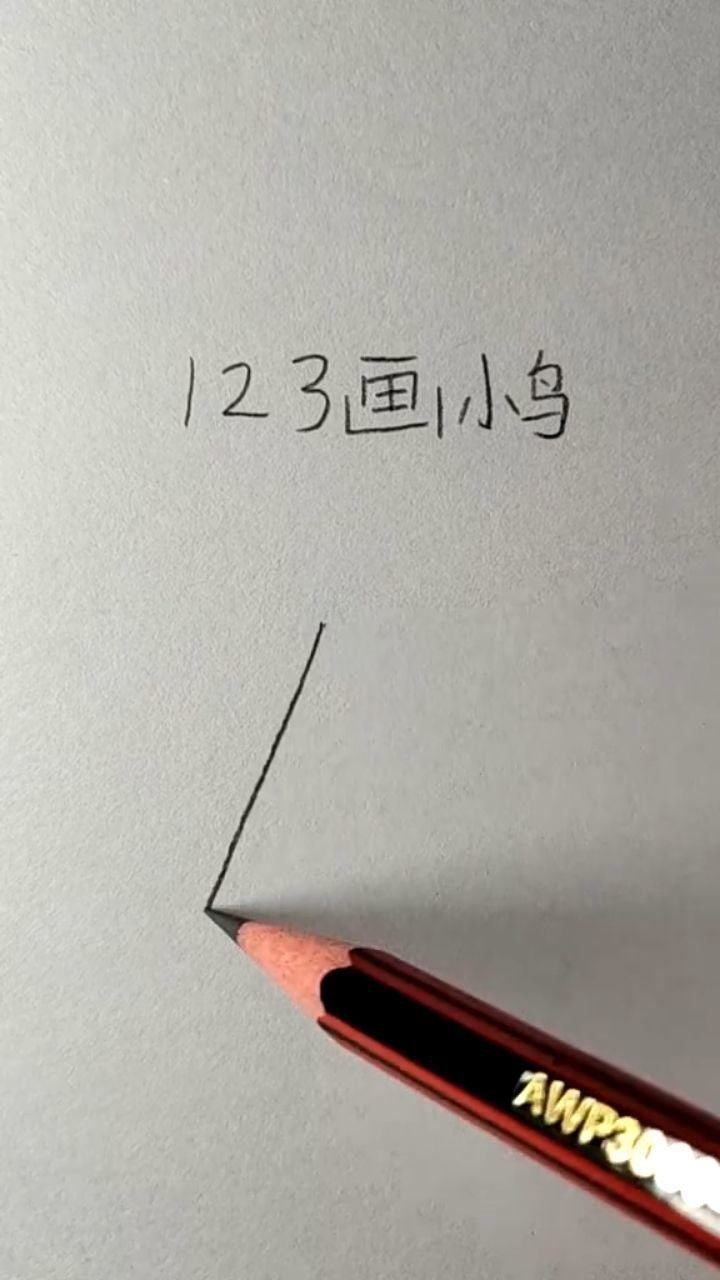 123画小鸟
AWP30